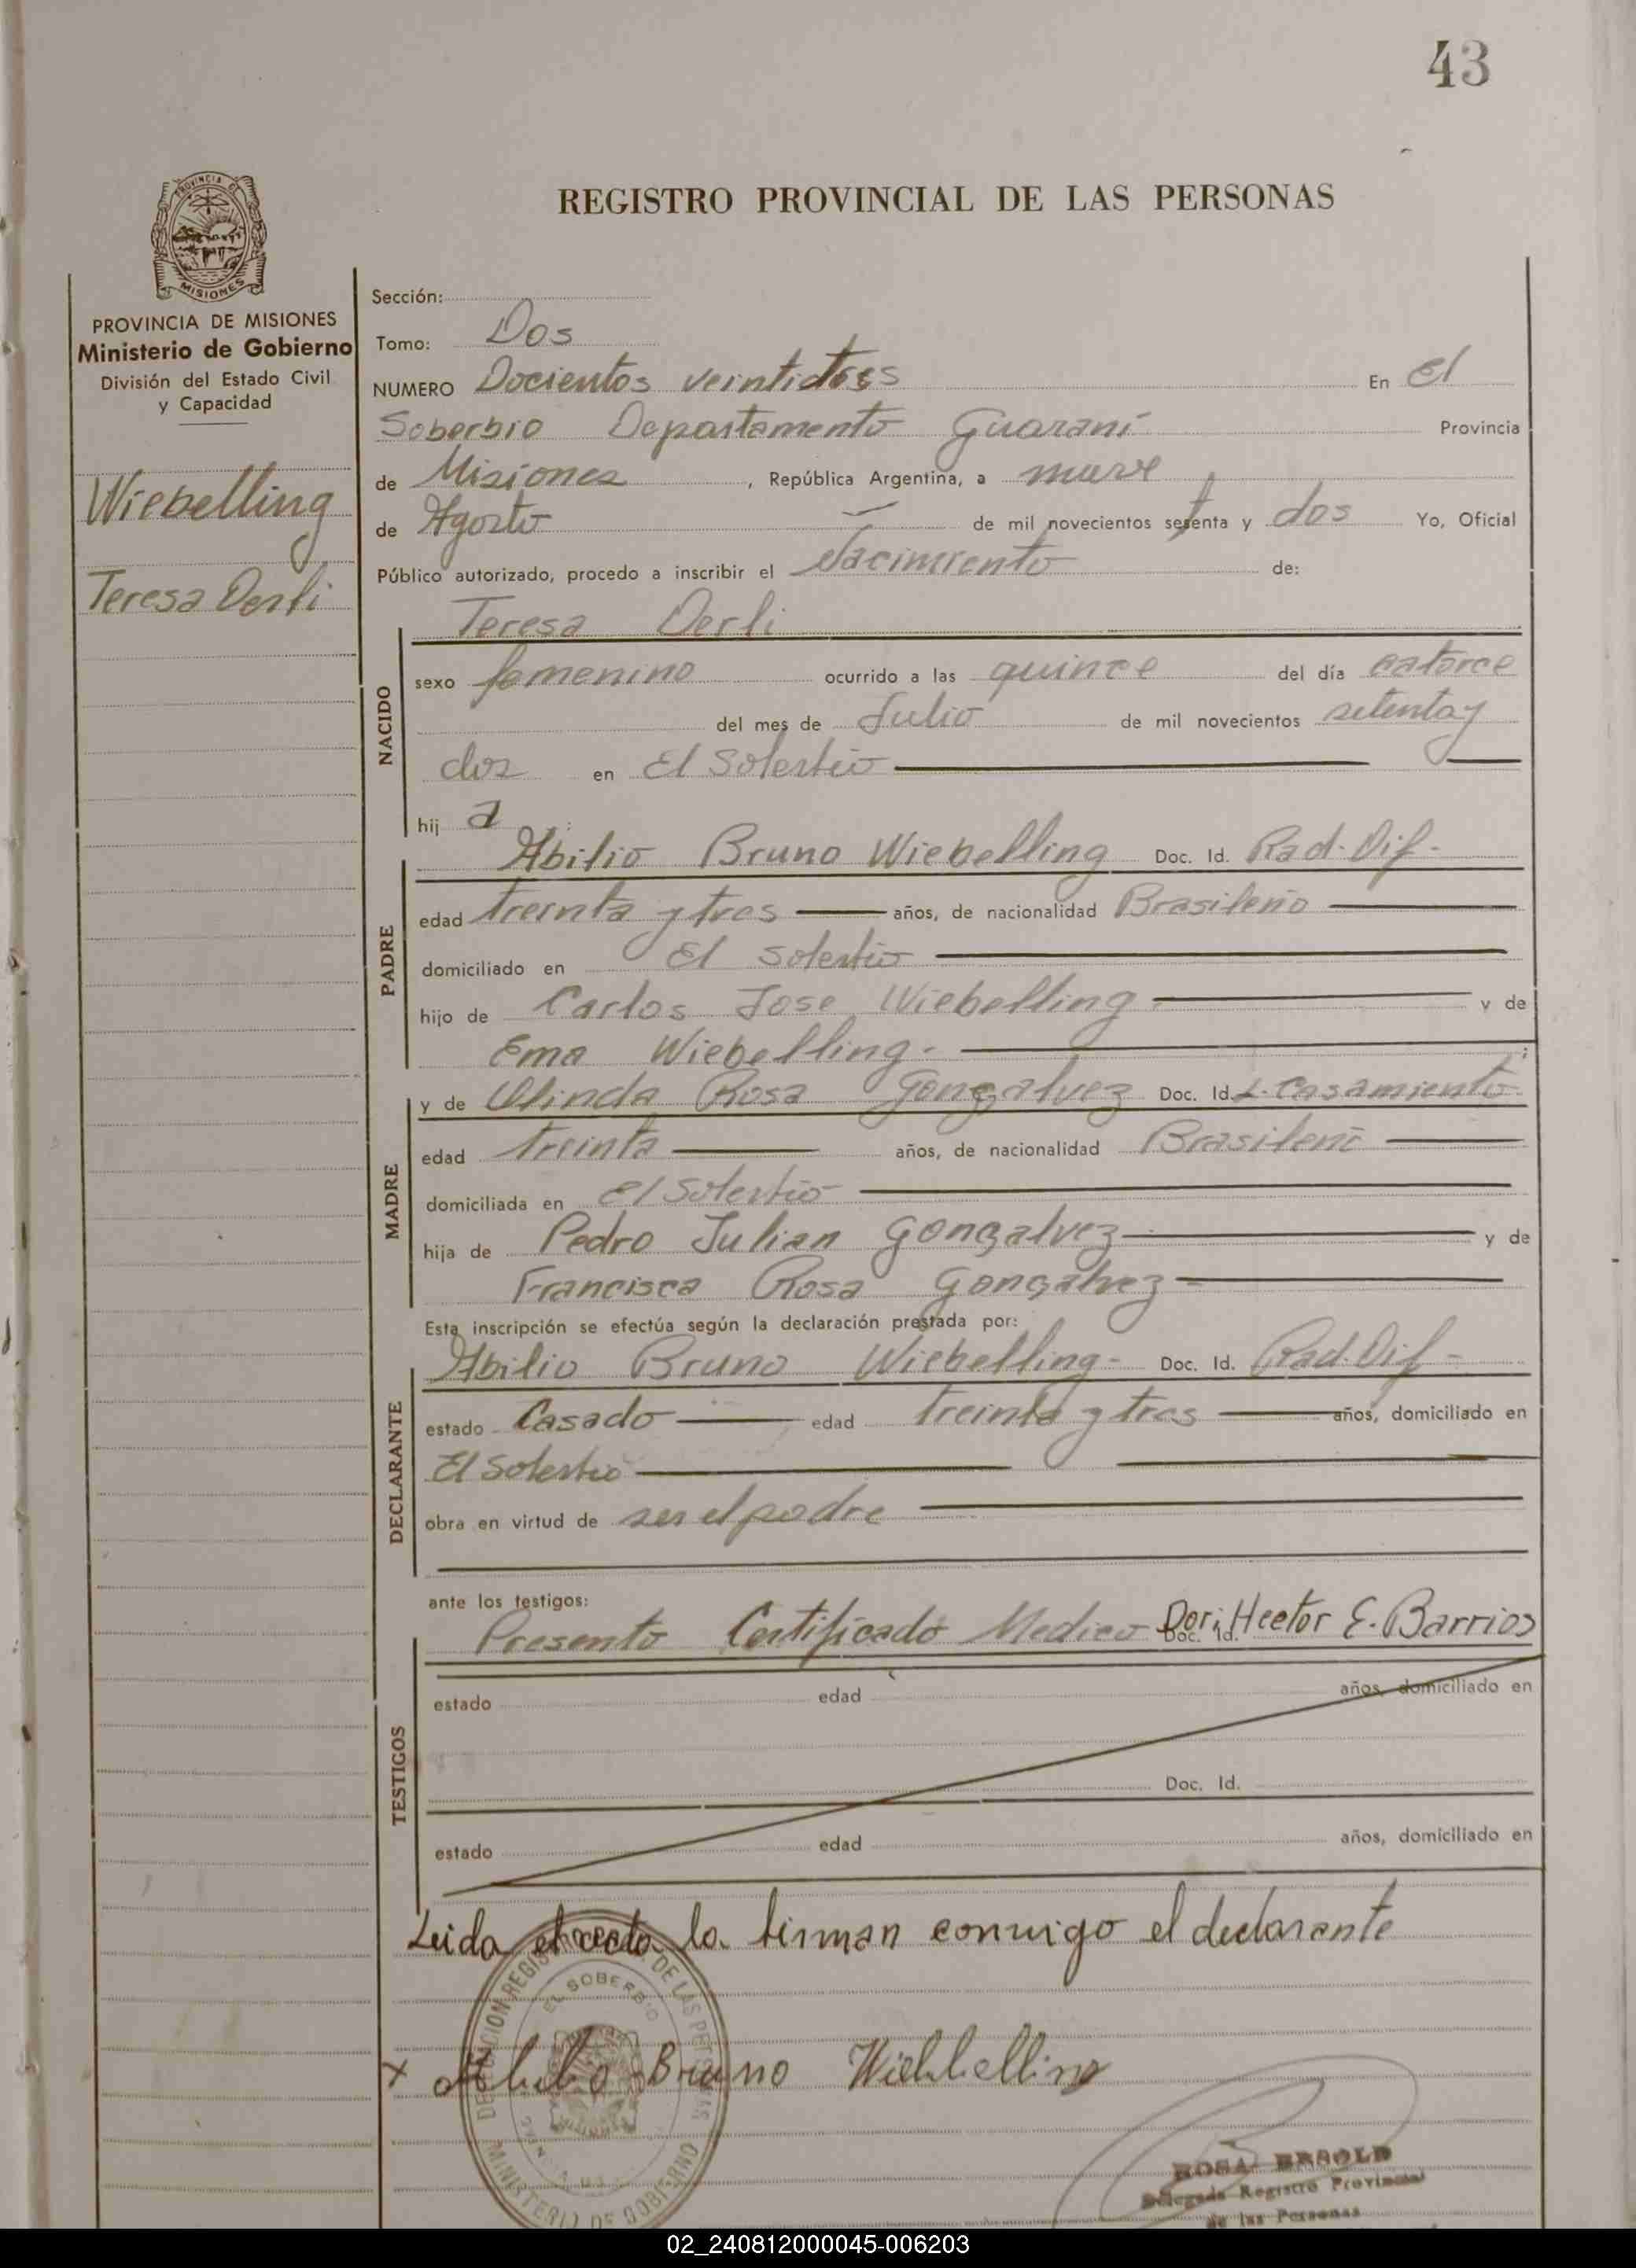 43
REGISTRO PROVINCIAL DE LAS PERSONAS
PROVINCIA DE MISIONES
Ministerio de Gobierno
División del Estado Civil
y Capacidad
Wiebelling
Teresa Derli
Sección:
Tomo: Dos
NUMERO Docientos veintidos En El
Soberbio Departamento Guaraní Provincia
de Misiones, República Argentina, a nueve
de Agosto de mil novecientos setenta y dos Yo, Oficial
Público autorizado, procedo a inscribir el Nacimiento de:
Teresa Derli
NACIDO
sexo femenino ocurrido a las quince del día catorce
del mes de Julio de mil novecientos setenta y
dos en El Soberbio
hij a
PADRE
Abilio Bruno Wiebelling Doc. Id. Rad. Dif.
edad treinta y tres años, de nacionalidad Brasileño
domiciliado en El Soberbio
hijo de Carlos Jose Wiebelling y de
Ema Wiebelling.
MADRE
y de Olinda Rosa Gonçalvez Doc. Id. L. Casamiento
edad treinta años, de nacionalidad Brasileñ
domiciliada en El Soberbio
hija de Pedro Julian Gonçalvez y de
Francisca Rosa Gonçalvez
Esta inscripción se efectúa según la declaración prestada por:
DECLARANTE
Abilio Bruno Wiebelling Doc. Id. Rad. Dif
estado Casado edad treinta y tres años, domiciliado en
El Soberbio
obra en virtud de ser el padre
ante los testigos:
Presento Certificado Medico Doc. Id. Hector E. Barrios
TESTIGOS
estado edad años, domiciliado en
Doc. Id.
estado edad años, domiciliado en
Leida el acta la firman conmigo el declarante
x Abilio Bruno Wiebbelling
DELEGACION REGISTRO DE LAS PERSONAS
EL SOBERBIO
MINISTERIO DE GOBIERNO
ROSA
Delegada Registro Provincial
de las Personas
02_240812000045-006203